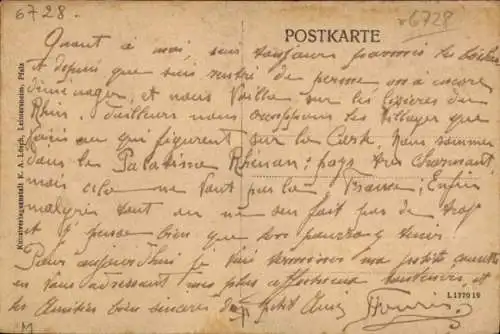 6728.
6728
POSTKARTE
Quant à moi, suis toujours parmis les boches
et depuis que suis rentré de perme on a encore
déménager, et nous Voilla sur les lisières du
Rhin. d'ailleurs nous les Villages que
qui figurent sur la Carte. Nous sommes
dans le Palatina Rhenan; pays très charmant,
mais cela ne Vaut pas la France; Enfin
malgrés tout on ne s'en fait pas de trop
et j' pense bien que
Pour aujourd'hui je Vais terminer ma petite
en Vous adressant mes plus affectueux
et Amitiés bien sincères du petit Ami
Kunstverlagsanstalt K. A. Lösch, Leimersheim, Pfalz
L 1370 19
M